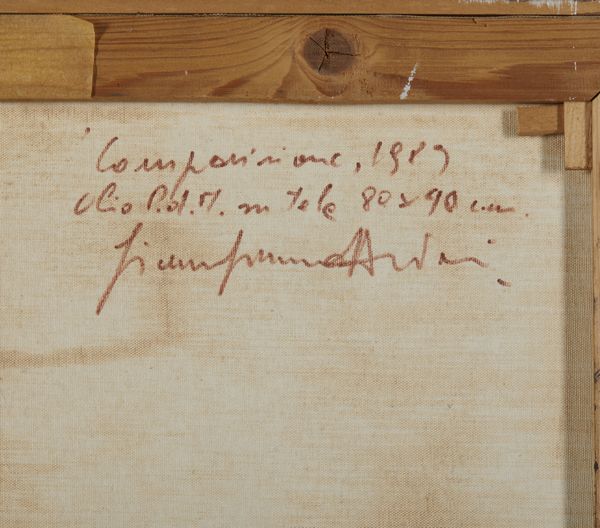 Composizione, 1989
olio P.d.M. su tela 80x90 cm.
Gianfranco Ardini